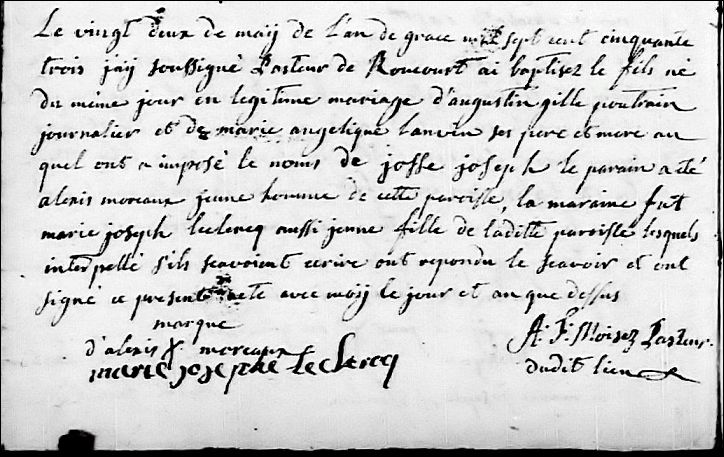 Le vingt deux de maij de l'an de grace mil sept cent cinquante
trois jaij soussigné Pasteur de Roucourt ai baptisez le fils né
du même jour en legitime mariage d'augustin gille poutrain
journalier et de marie angelique lanvin ses pere et mere au
quel ont a imposé le noms de josse joseph le parain a été
alexis moreaux jeune homme de cette paroisse, la maraine fut
marie joseph leclercq aussi jeune fille de laditte paroisse lesquels
interpellé s'ils scavoient ecrire ont repondu le scavoir et ont
signé ce present acte avec moij le jour et an que dessus
marque
d'alexis X moreaux
marie josephe le clercq
A: F: Moisez Pasteur
dudit lieu